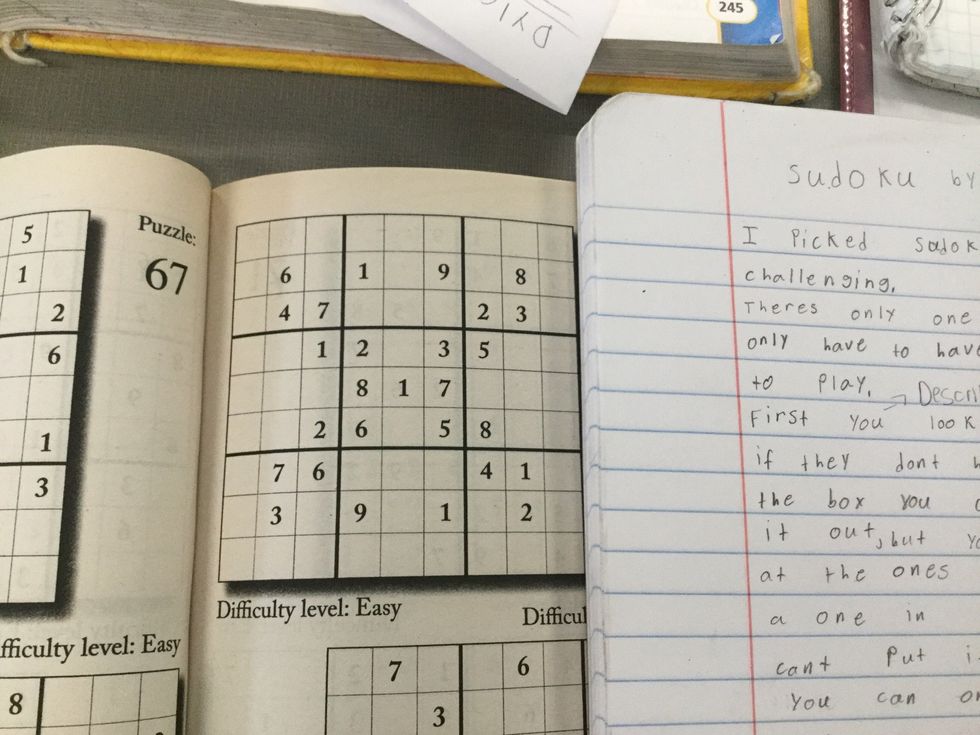 245
DYL
5
1
2
6
1
3
Puzzle:
67
6 1 9 8
4 7 2 3
1 2 3 5
8 1 7
2 6 5 8
7 6 4 1
3 9 1 2
Difficulty level: Easy
Difficul
fficulty level: Easy
8
7 6
3
Sudoku by
I Picked Sudok
challenging.
Theres only one
only have to have
to Play. Descri
First you look
if they dont
the box you
it out, but yo
at the ones
a one in
cant Put i
You can on